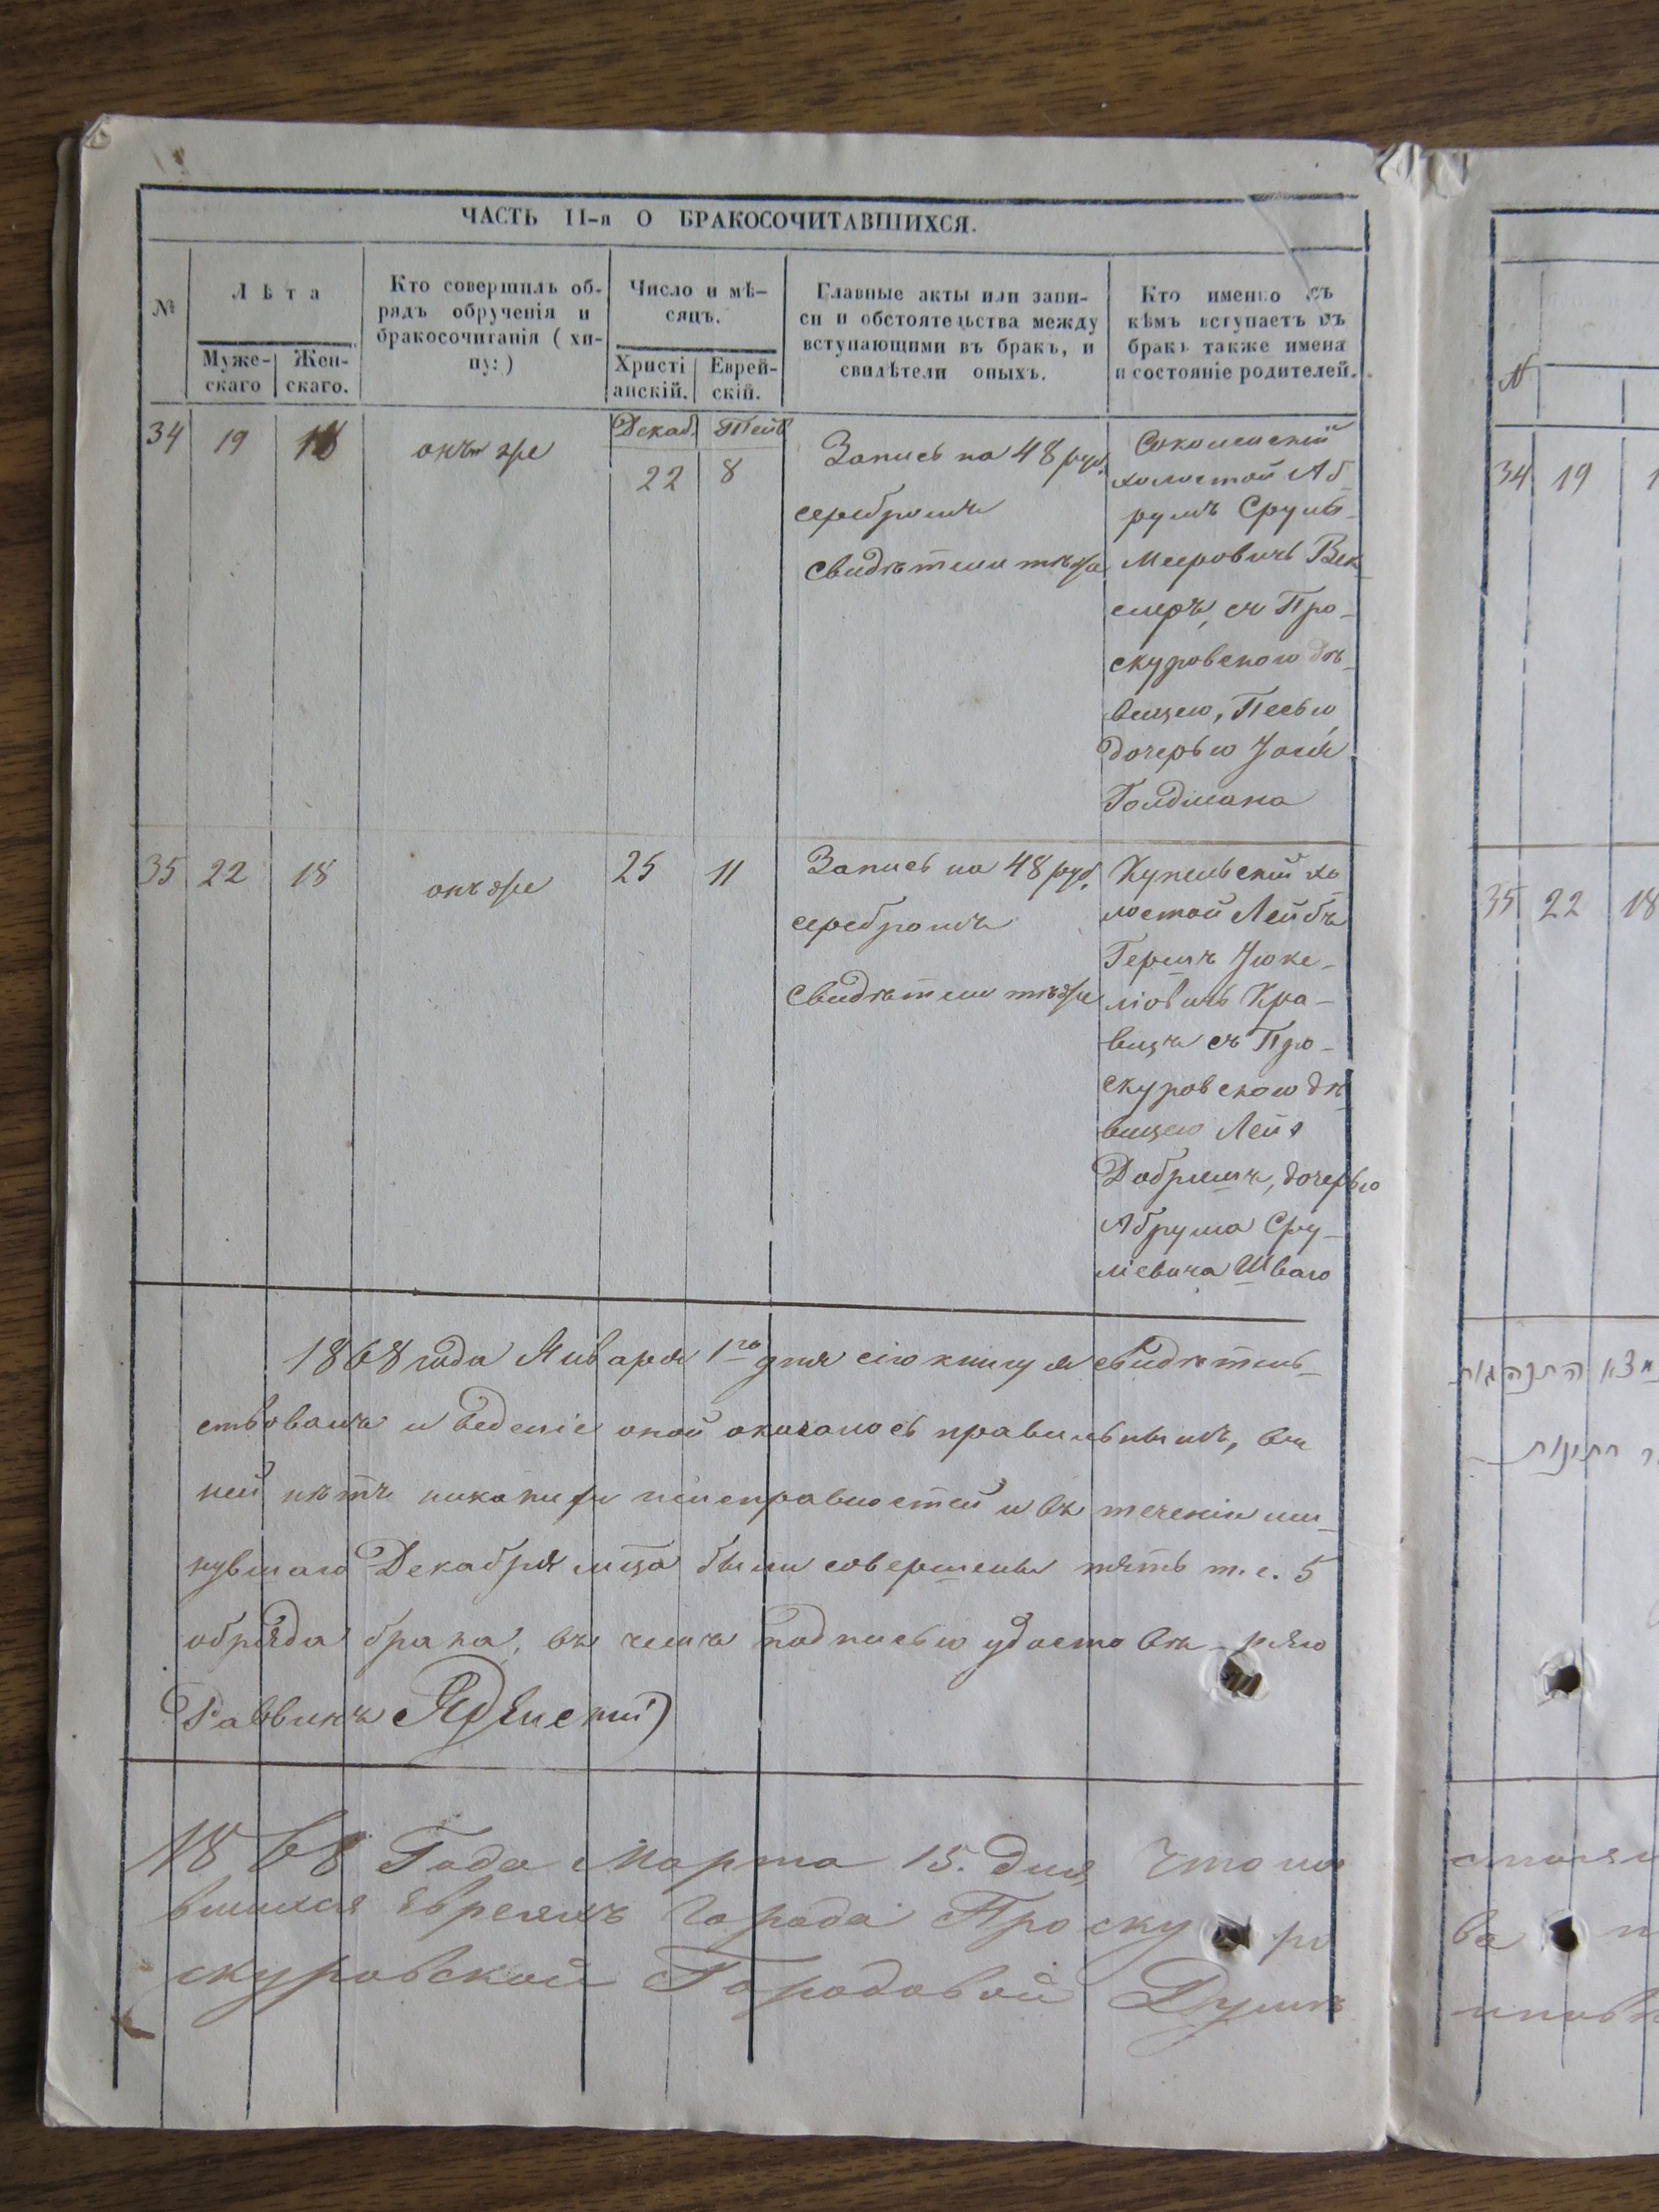 ЧАСТЬ II-я О БРАКОСОЧИТАВШИХСЯ.
№
Лѣта
Муже-
скаго
Жен-
скаго.
Кто совершилъ об-
рядъ обрученія и
бракосочитанія (хи-
пу:)
Число и мѣ-
сяцъ.
Христі
анскій.
Еврей-
скій.
Главные акты или запи-
си и обстоятельства между
вступающими въ бракъ, и
свидѣтели оныхъ.
Кто именно съ
кѣмъ вступаетъ въ
бракъ также имена
и состояніе родителей.
34
19
18
онъ же
Декаб.
22
Тейв
8
Запись на 48 руб.
серебромъ
Свидѣтели тѣже
холостой Аб-
румъ Сруль-
Мееровичъ Век-
слеръ, съ Про-
скуровскою дѣ-
вицею, Песью
дочерью
Голдмана
35
22
18
онъ же
25
11
Запись на 48 руб.
серебромъ
Свидѣтели тѣже
Купельскій хо
лостой Лейбъ
Гершъ Іюке-
ліовичъ Кра-
вецъ съ Про-
скуровскою дѣ-
вицею Лея
Добришъ, дочерью
Абрума Сру-
ліевича Шваго
1868 года Января 1го дня сію книгу я свидѣтель-
ствовалъ и веденіе оной оказалось правильнымъ, въ
ней нѣтъ никакихъ неисправностей и въ теченіи ми-
нувшаго Декабря мца были совершены пять т.е. 5
обряда брака, въ чемъ подписью удостовѣ-ряю
Раввинъ
1868 Года Марта 15. Дня Что
вшихся Евреямъ Города Проскуро
скуровской Городовой Думѣ
№
34
19
1
35
22
18
ва